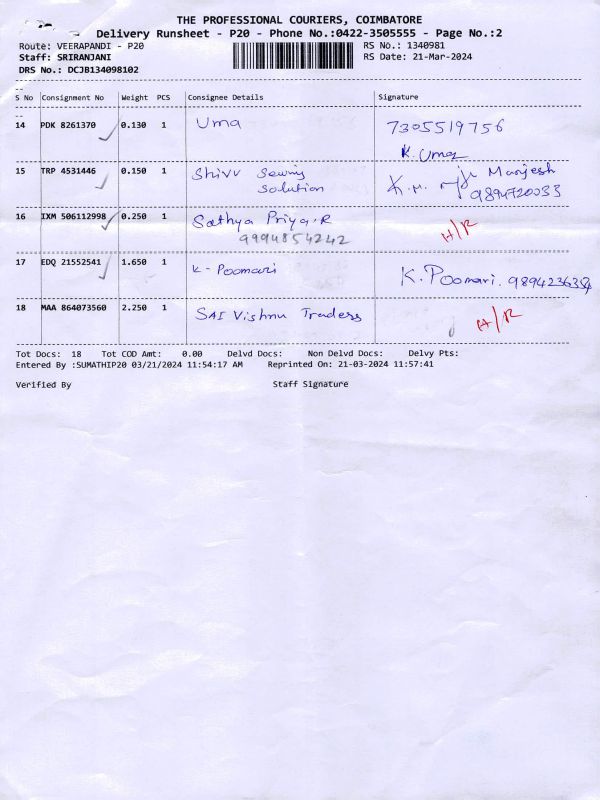 THE PROFESSIONAL COURIERS, COIMBATORE
Delivery Runsheet - P20 - Phone No.:0422-3505555 - Page No.:2
Route: VEERAPANDI - P20 RS No.: 1340981
Staff: SRIRANJANI RS Date: 21-Mar-2024
DRS No.: DCJB134098102
S No Consignment No Weight PCS Consignee Details Signature
14 PDK 8261370 0.130 1 Uma 7305519756
K. Uma
15 TRP 4531446 0.150 1 Shivv Sewing Manjesh
Solution K.M. 9894720033
16 IXM 506112998 0.250 1 Sathya Priya.R H/R
9994854242
17 EDQ 21552541 1.650 1 K-Poomari K.Poomari.
18 MAA 864073560 2.250 1 SAI Vishnu Traders H/R
Tot Docs: 18 Tot COD Amt: 0.00 Delvd Docs: Non Delvd Docs: Delvy Pts:
Entered By :SUMATHIP20 03/21/2024 11:54:17 AM Reprinted On: 21-03-2024 11:57:41
Verified By Staff Signature